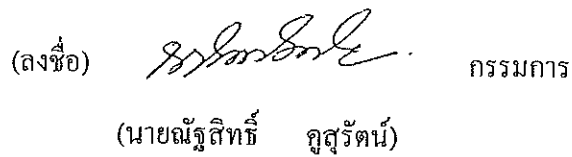 (ลงชื่อ) กรรมการ
(นายณัฐสิทธิ์ คูสุรัตน์)